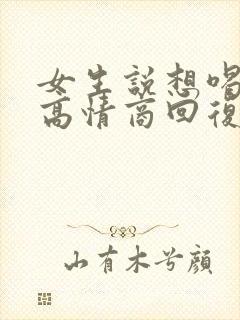 女生說想喝
高情商回復
山有木兮顔